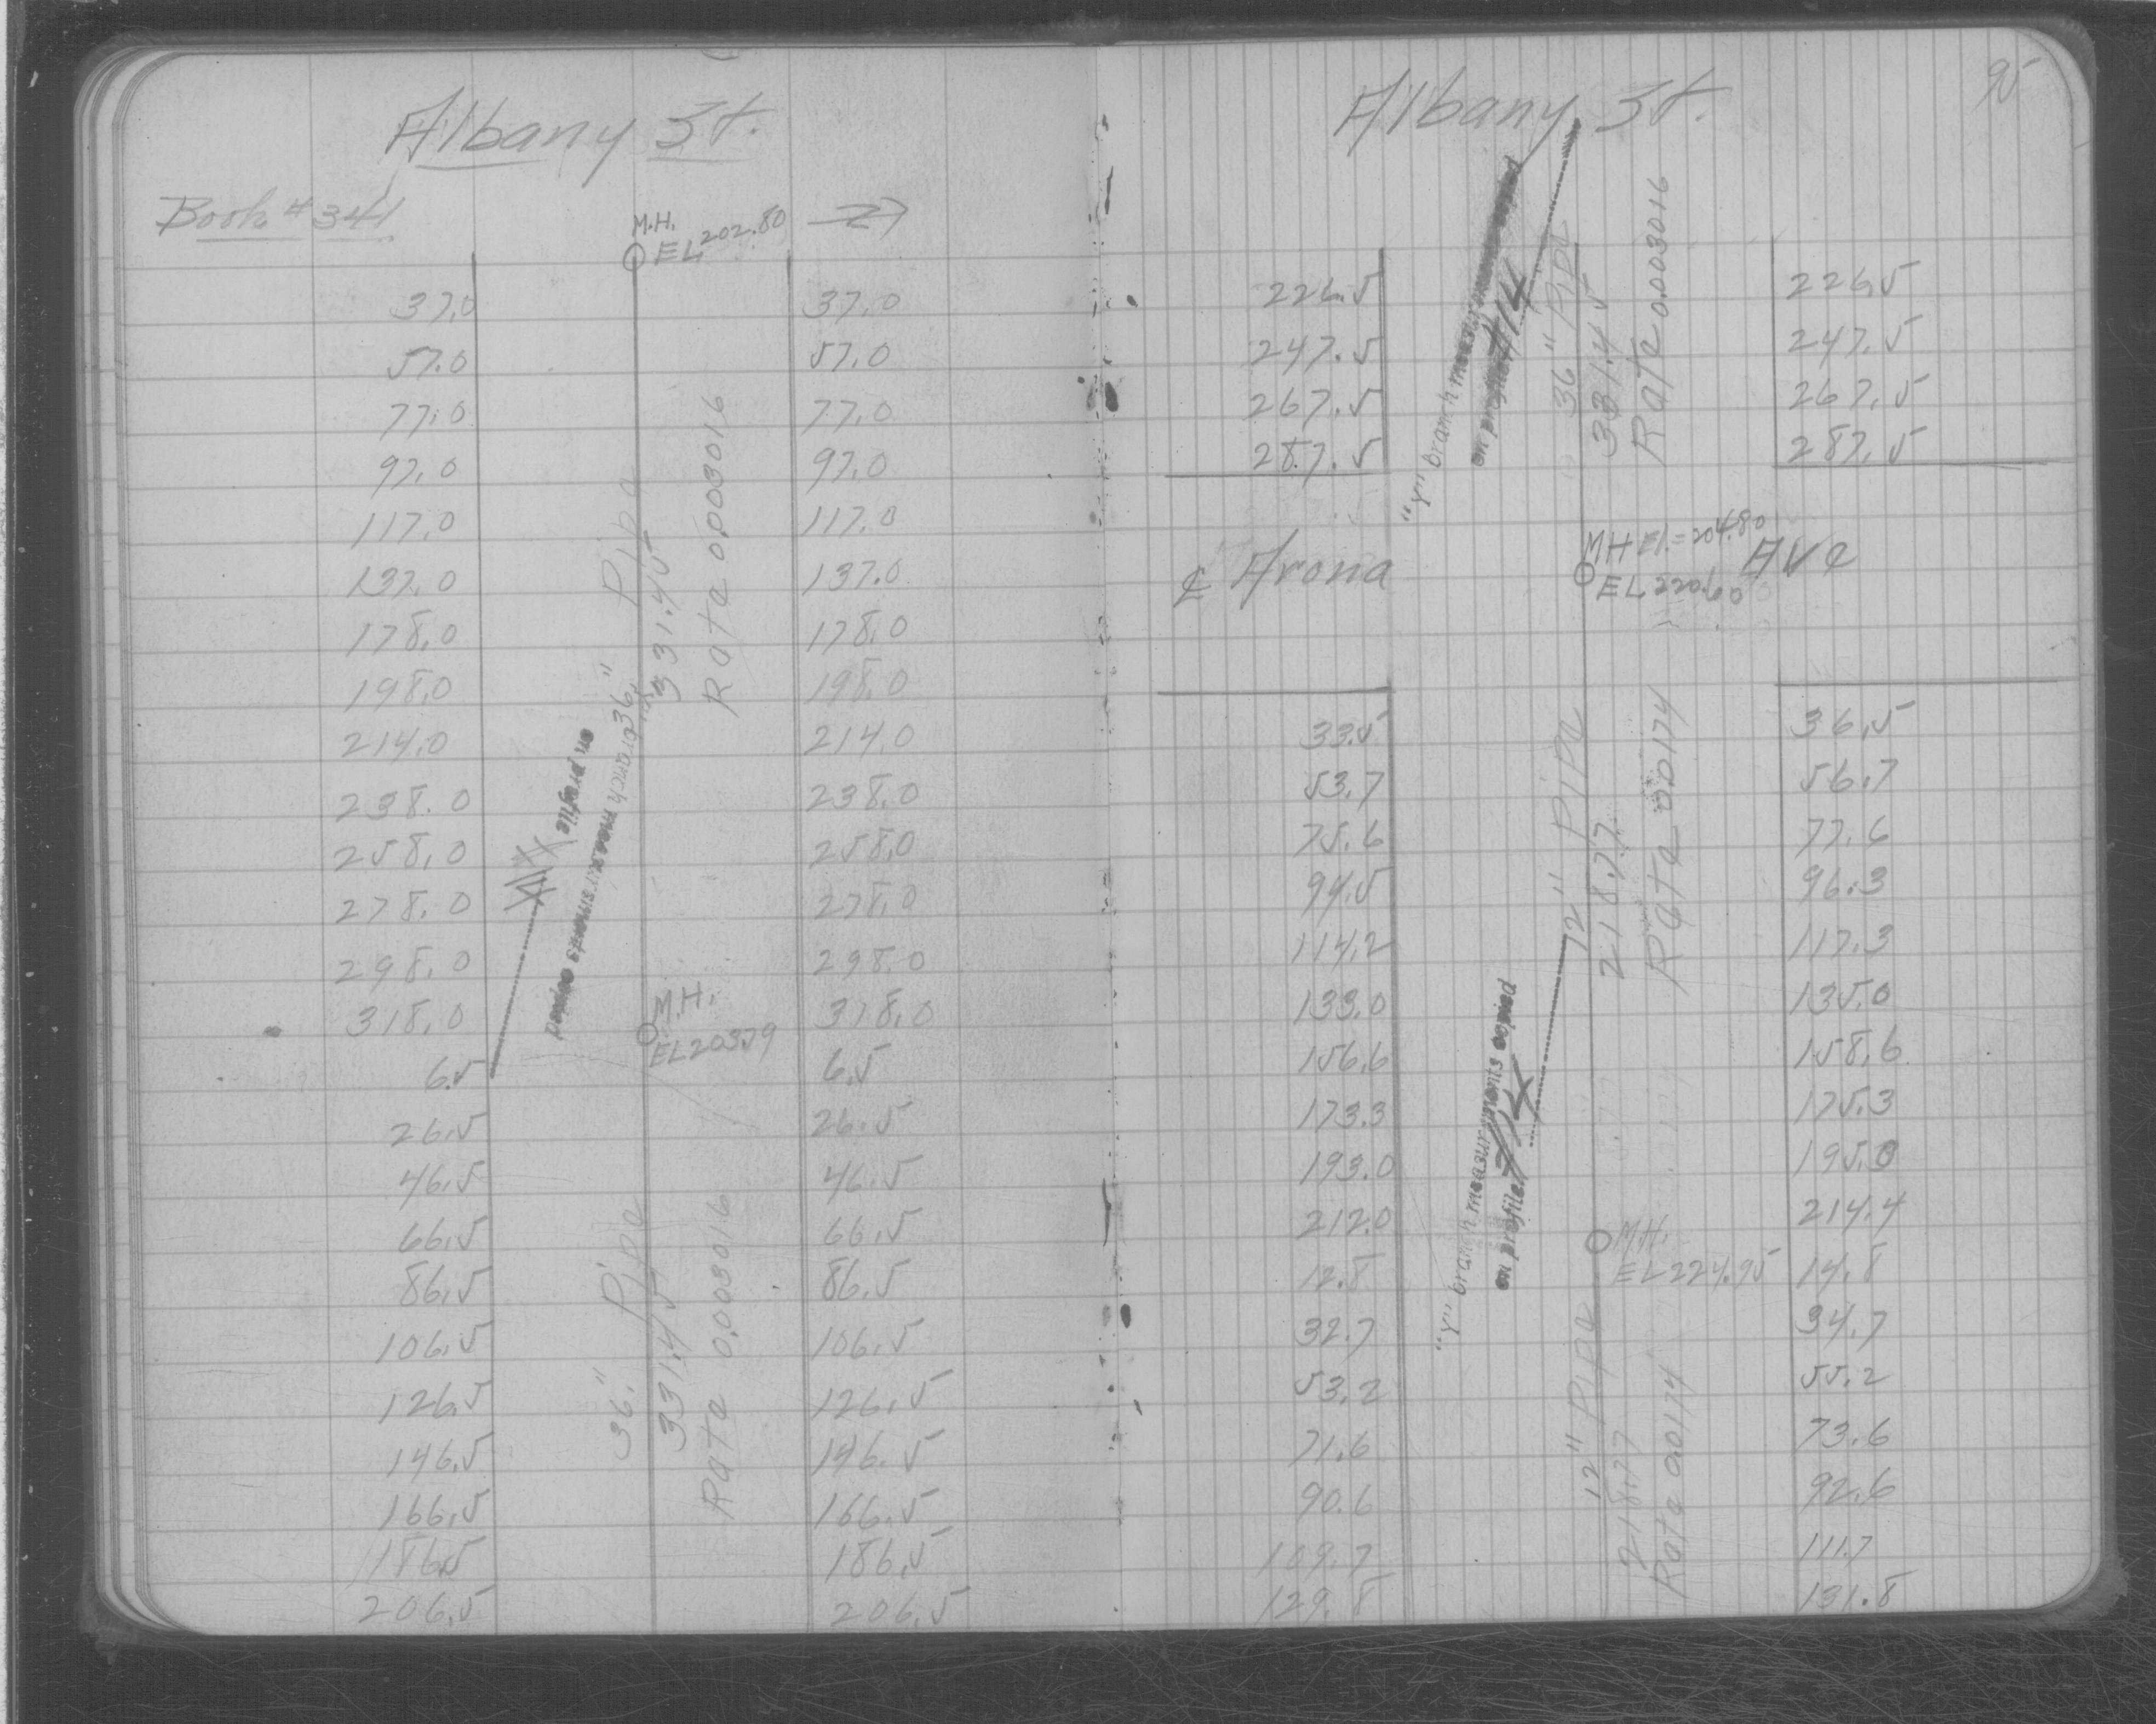 Albany St.
Book # 341
M.H.
EL 202.80
37.0 37.0
57.0 57.0
77.0 77.0
97.0 97.0
117.0 117.0
137.0 137.0
178.0 178.0
198.0 198.0
214.0 214.0
238.0 238.0
258.0 258.0
278.0 278.0
298.0 298.0
318.0 318.0
36" Pipe
331.45
Rate 0.003016
"Y" branch measurments copied
on profile
M.H.
EL 203.79
6.5 6.5
26.5 26.5
46.5 46.5
66.5 66.5
86.5 86.5
106.5 106.5
126.5 126.5
146.5 146.5
166.5 166.5
186.5 186.5
206.5 206.5
36" Pipe
331.45
Rate 0.003016
95
Albany St.
226.5 226.5
247.5 247.5
267.5 267.5
287.5 287.5
"Y" branch measurments copied
on profile #14
36" Pipe
331.45
Rate 0.003016
℄ Arona Ave
MH El. = 204.80
EL 220.60
33.5 36.5
53.7 56.7
75.6 77.6
94.5 96.3
114.2 117.3
133.0 135.0
156.6 158.6
173.3 175.3
193.0 195.0
212.0 214.4
12" Pipe
218.77
Rate 0.0174
"Y" branch measurments copied
on profile #14
M.H.
EL 224.95
12.8 14.8
32.7 34.7
53.2 55.2
71.6 73.6
90.6 92.6
109.7 111.7
129.8 131.8
12" Pipe
218.77
Rate 0.0174